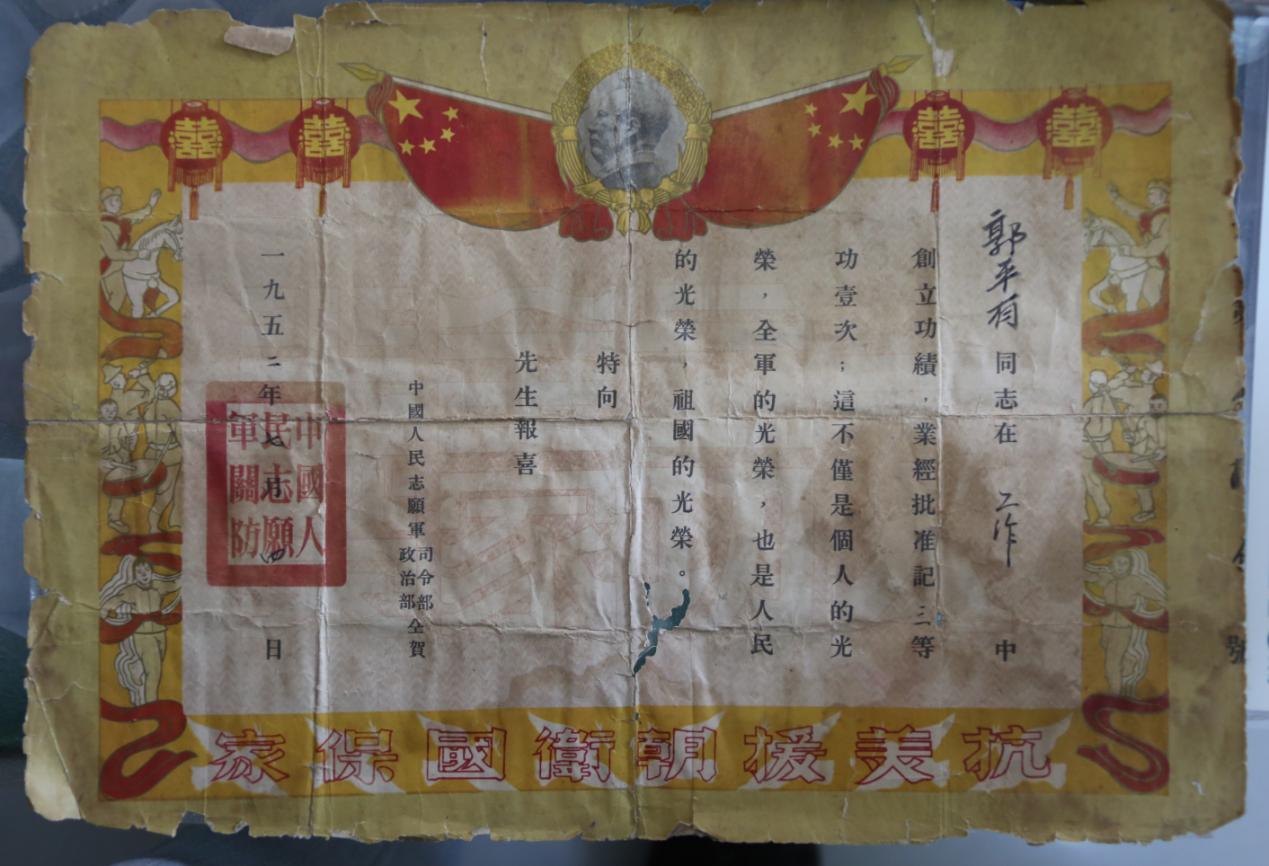 囍 囍 囍 囍
號
郭平 同志在 工作 中
創立功績，業經批准記三等
功壹次；這不僅是個人的光
榮，全軍的光榮，也是人民
的光榮，祖國的光榮。
特向
先生報喜
中國人民志願軍 司令部 政治部 仝賀
一九五二年七月四日
中國人
民志願
軍關防
抗美援朝衛國保家